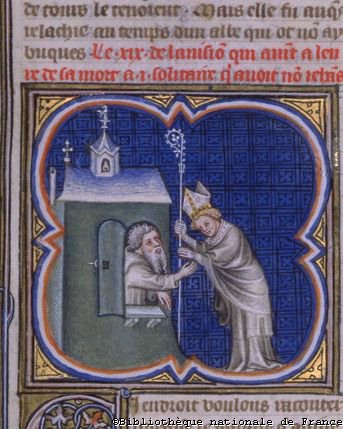 de touʒ le tenoient. Mais elle fu auqͥ
relachie au temps dun abbe qui ot nō ay
buques. Le .xix. de lauision qui auint a leu
re de sa mort a .i. solitaire q̄ auoit nō jehās
endroit voulons raconter
©Bibliothèque nationale de France